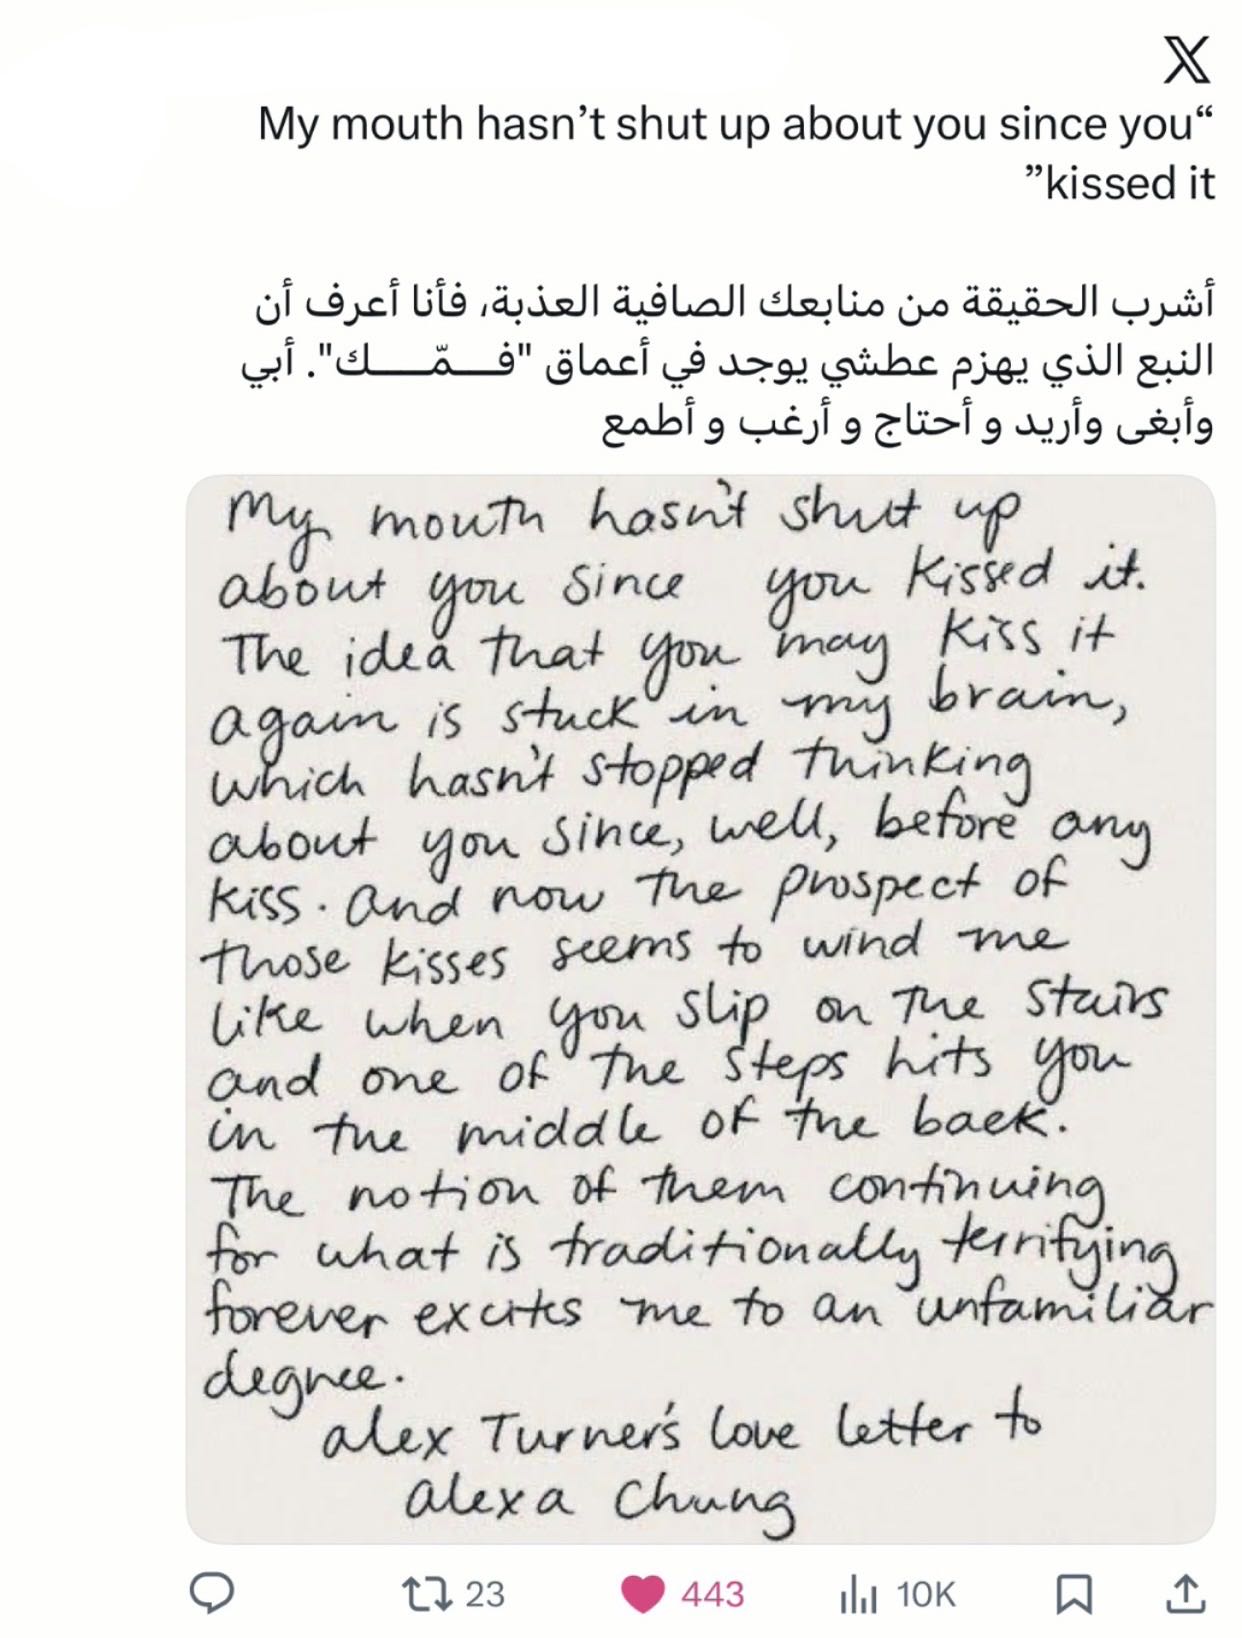 My mouth hasn’t shut up about you since you“
”kissed it
أشرب الحقيقة من منابعك الصافية العذبة، فأنا أعرف أن
النبع الذي يهزم عطشي يوجد في أعماق "فـــمّـــــك". أبي
وأبغى وأريد و أحتاج و أرغب و أطمع
My mouth hasn't shut up
about you since you kissed it.
The idea that you may kiss it
again is stuck in my brain,
which hasn't stopped thinking
about you since, well, before any
kiss. And now the prospect of
those kisses seems to wind me
like when you slip on the stairs
and one of the steps hits you
in the middle of the back.
The notion of them continuing
for what is traditionally terrifying
forever excites me to an unfamiliar
degree.
Alex Turner's love letter to
Alexa Chung
23 443 10K